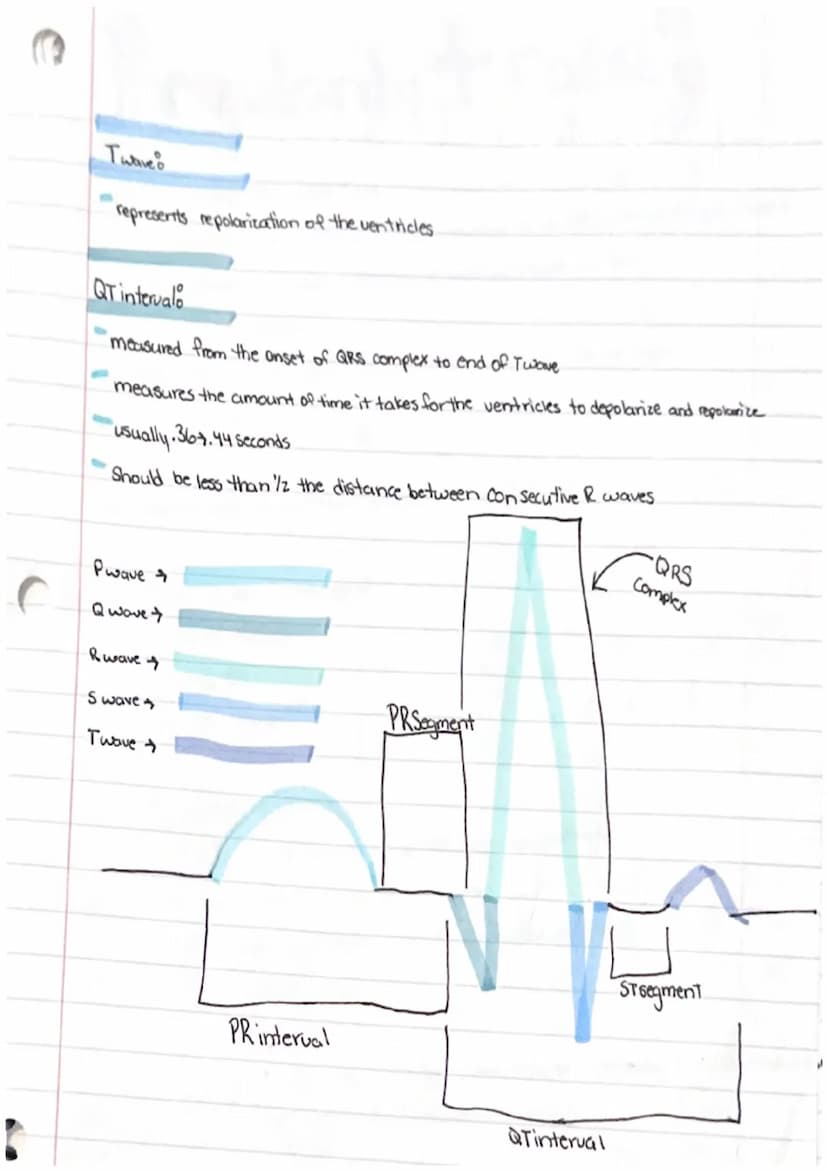 T wave:
represents repolarization of the ventricles
QT interval:
measured from the onset of QRS complex to end of T wave
measures the amount of time it takes for the ventricles to depolarize and repolarize
usually .36→.44 seconds
Should be less than 1/2 the distance between consecutive R waves
P wave →
Q wave →
R wave →
S wave →
T wave →
QRS
complex
PR Segment
ST segment
PR interval
QT interval